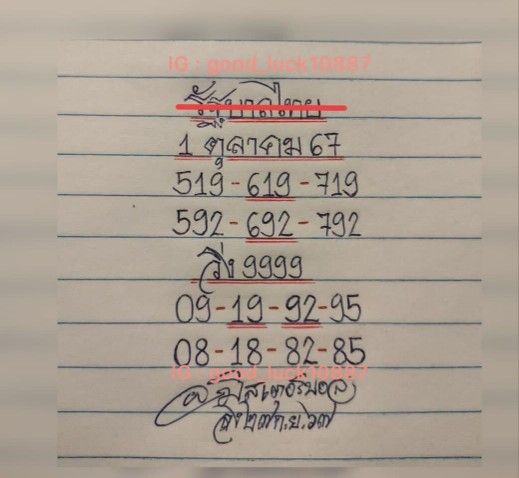 IG : good_luck10887
รัฐบาลไทย
1 ตุลาคม 67
519-619-719
592-692-792
วิ่ง 9999
09-19-92-95
08-18-82-85
IG : good_luck10887
๒๗ ก.ย. ๖๗